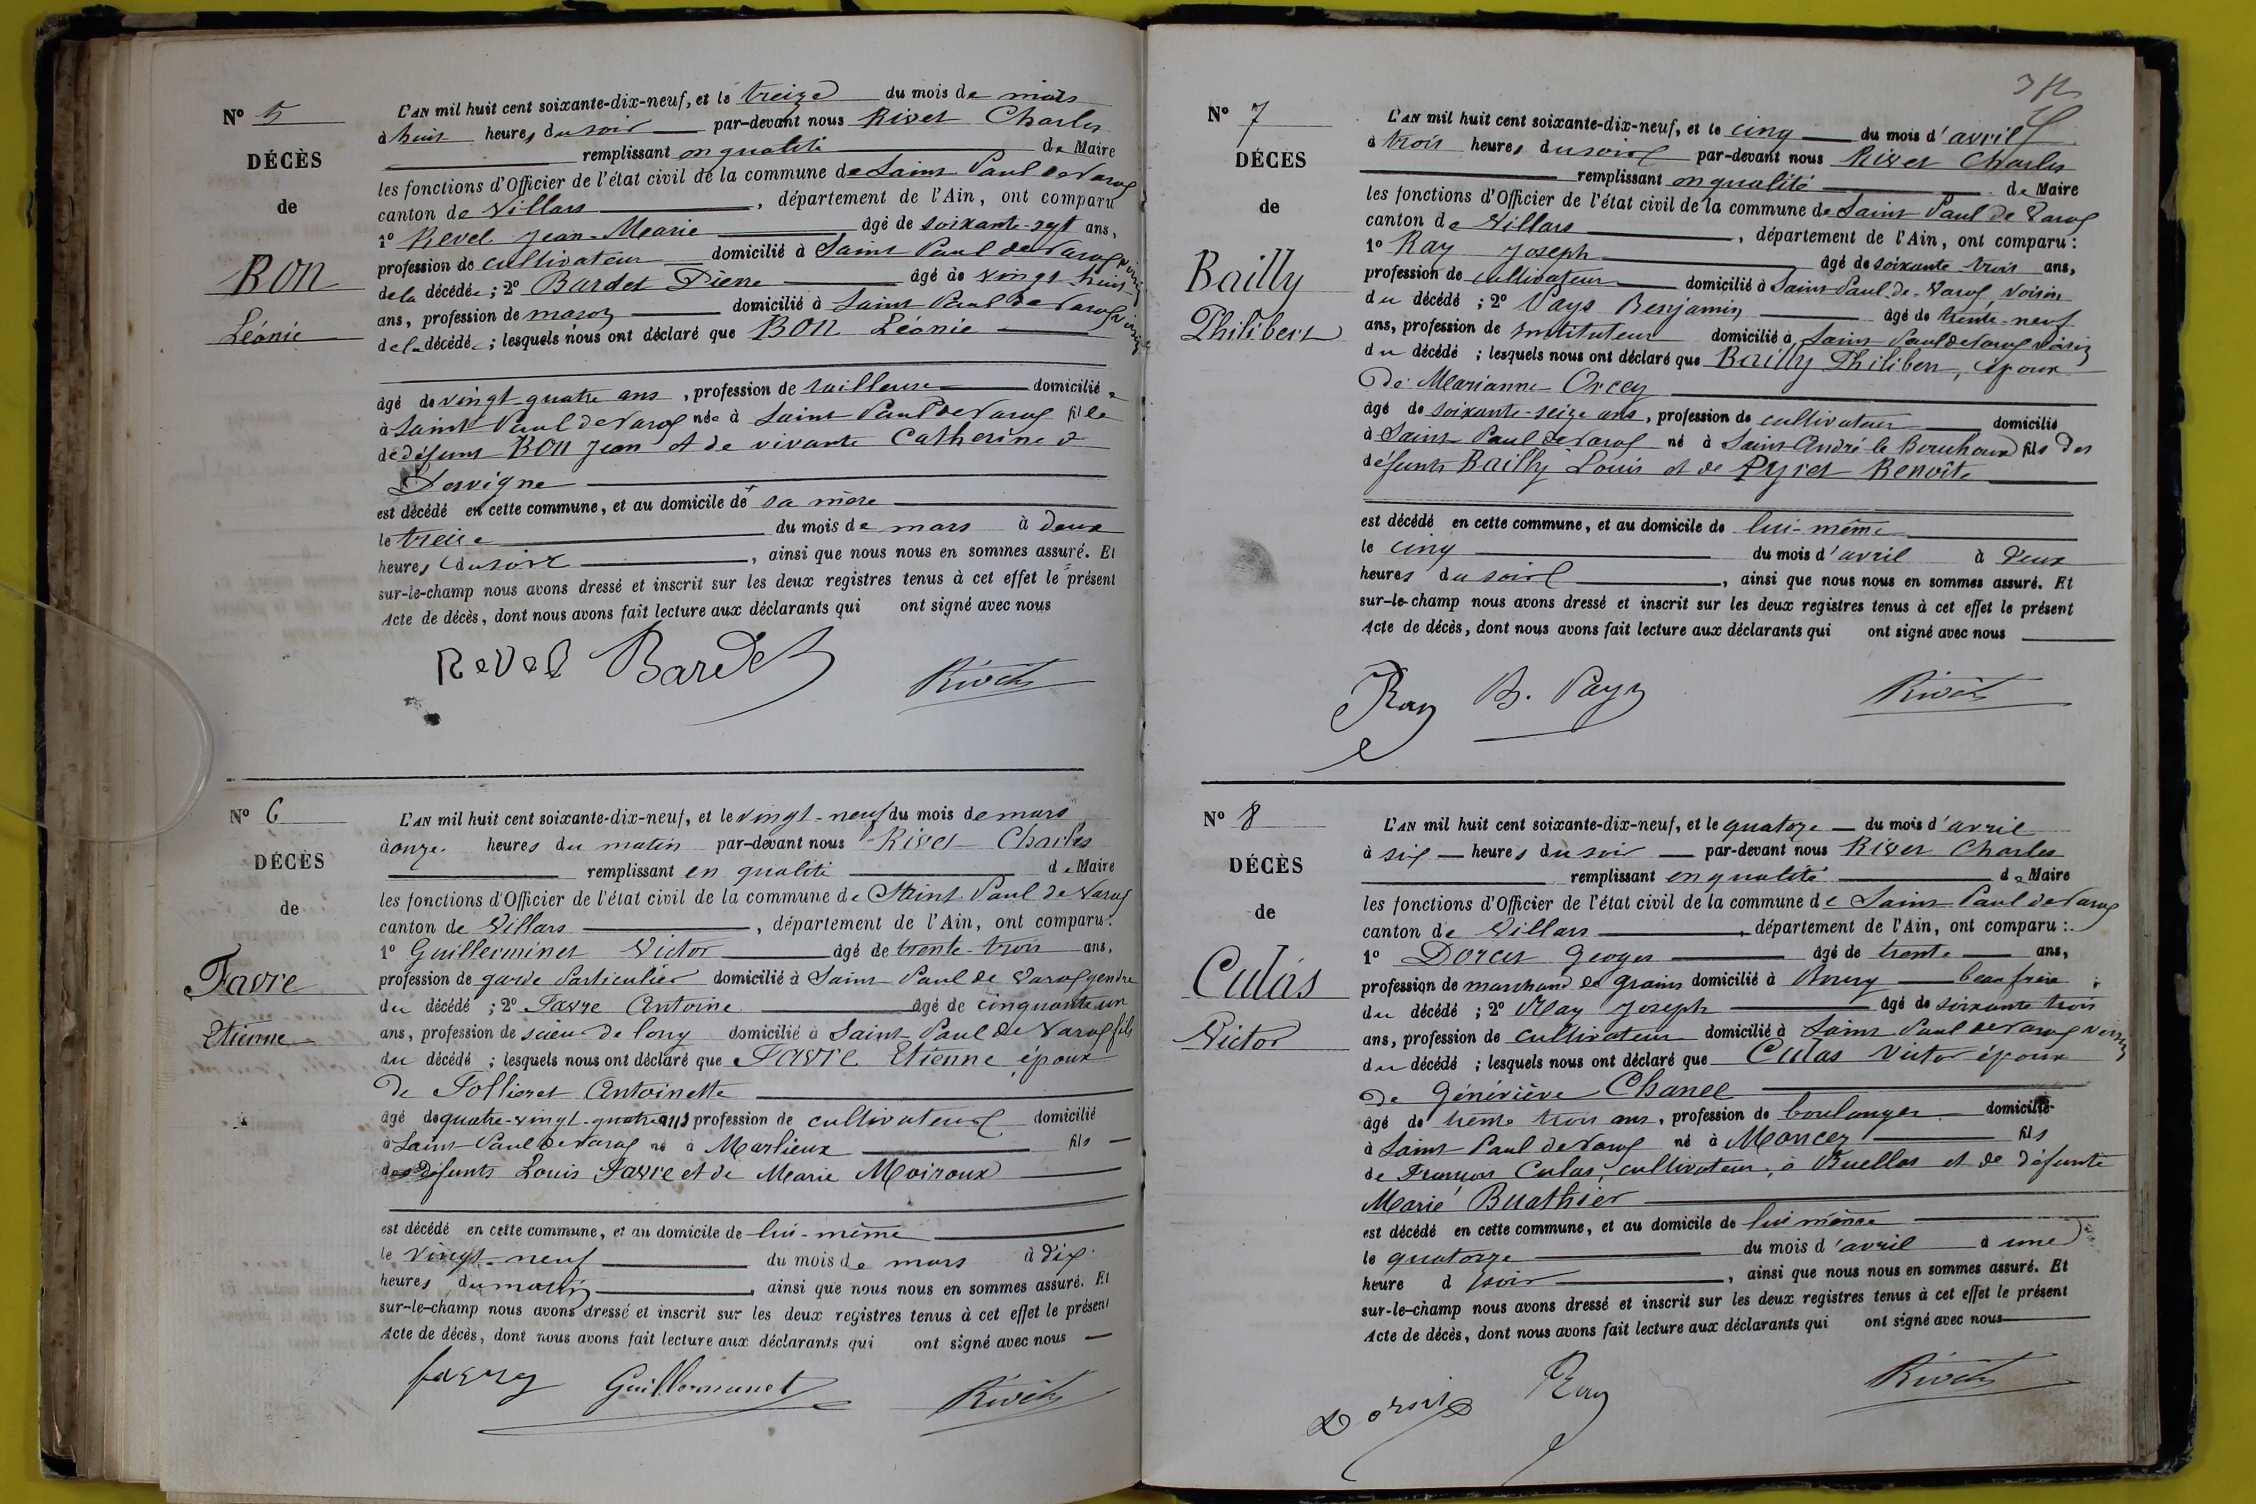 Nº 5
DÉCÈS
de
BON
Léonie
L'AN mil huit cent soixante-dix-neuf, et le treize du mois de mars
à huit heures du soir par-devant nous Rivet Charles
remplissant en qualité de Maire
les fonctions d'Officier de l'état civil de la commune de Saint Paul de Varax
canton de Villars, département de l'Ain, ont comparu
1º Revel Jean-Marie âgé de soixante-sept ans,
profession de cultivateur domicilié à Saint Paul de Varax voisin
de la décédée; 2º Bardet Pierre âgé de vingt-huit
ans, profession de maçon domicilié à Saint Paul de Varax voisin
de la décédée; lesquels nous ont déclaré que BON Léonie
âgé de vingt-quatre ans, profession de tailleuse domiciliée
à Saint Paul de Varax née à Saint Paul de Varax fille
de défunt BON Jean et de vivante Catherine
Desvigne
est décédé en cette commune, et au domicile de sa mère
le treize du mois de mars à deux
heures du soir, ainsi que nous nous en sommes assuré. Et
sur-le-champ nous avons dressé et inscrit sur les deux registres tenus à cet effet le présent
Acte de décès, dont nous avons fait lecture aux déclarants qui ont signé avec nous
Revel Bardet Rivet
Nº 6
DÉCÈS
de
Favre
Etienne
L'AN mil huit cent soixante-dix-neuf, et le vingt-neuf du mois de mars
à onze heures du matin par-devant nous Rivet Charles
remplissant en qualité de Maire
les fonctions d'Officier de l'état civil de la commune de Saint Paul de Varax
canton de Villars, département de l'Ain, ont comparu:
1º Guillerminet Victor âgé de trente-trois ans,
profession de garde particulier domicilié à Saint Paul de Varax gendre
du décédé; 2º Favre Antoine âgé de cinquante un
ans, profession de scieur de long domicilié à Saint Paul de Varax fils
du décédé; lesquels nous ont déclaré que Favre Etienne époux
de Follieret Antoinette
âgé de quatre-vingt-quatre ans profession de cultivateur domicilié
à Saint Paul de Varax né à Marlieux fils
des défunts Louis Favre et de Marie Moiroux
est décédé en cette commune, et au domicile de lui-même
le vingt-neuf du mois de mars à dix
heures du matin, ainsi que nous nous en sommes assuré. Et
sur-le-champ nous avons dressé et inscrit sur les deux registres tenus à cet effet le présent
Acte de décès, dont nous avons fait lecture aux déclarants qui ont signé avec nous
Guillermenet Rivet
Nº 7
DÉCÈS
de
Bailly
Philibert
L'AN mil huit cent soixante-dix-neuf, et le cinq du mois d'avril
à trois heures du soir par-devant nous Rivet Charles
remplissant en qualité de Maire
les fonctions d'Officier de l'état civil de la commune de Saint Paul de Varax
canton de Villars, département de l'Ain, ont comparu:
1º Ray Joseph âgé de soixante trois ans,
profession de cultivateur domicilié à Saint-Paul-de-Varax, voisin
du décédé; 2º Pays Benjamin âgé de trente-neuf
ans, profession de instituteur domicilié à Saint Paul de Varax voisin
du décédé; lesquels nous ont déclaré que Bailly Philibert, époux
de Marianne Orcey
âgé de soixante-seize ans, profession de cultivateur domicilié
à Saint Paul de Varax né à Saint-André le Bouchoux fils des
défunts Bailly Louis et de Pyret Benoîte
est décédé en cette commune, et au domicile de lui-même
le cinq du mois d'avril à deux
heures du soir, ainsi que nous nous en sommes assuré. Et
sur-le-champ nous avons dressé et inscrit sur les deux registres tenus à cet effet le présent
Acte de décès, dont nous avons fait lecture aux déclarants qui ont signé avec nous
Ray B. Pays Rivet
Nº 8
DÉCÈS
de
Culas
Victor
L'AN mil huit cent soixante-dix-neuf, et le quatorze du mois d'avril
à six heures du soir par-devant nous Rivet Charles
remplissant en qualité de Maire
les fonctions d'Officier de l'état civil de la commune de Saint Paul de Varax
canton de Villars, département de l'Ain, ont comparu:
1º Dorcet Georges âgé de trente ans,
profession de marchand de grains domicilié à Bourg beau frère
du décédé; 2º Ray Joseph âgé de soixante trois
ans, profession de cultivateur domicilié à Saint Paul de Varax voisin
du décédé; lesquels nous ont déclaré que Culas Victor époux
de Généviève Chanel
âgé de trente trois ans, profession de boulanger domicilié
à Saint Paul de Varax né à Moncey fils
de François Culas, cultivateur, à Buellas et de défunte
Marie Buathier
est décédé en cette commune, et au domicile de lui même
le quatorze du mois d'avril à une
heure d soir, ainsi que nous nous en sommes assuré. Et
sur-le-champ nous avons dressé et inscrit sur les deux registres tenus à cet effet le présent
Acte de décès, dont nous avons fait lecture aux déclarants qui ont signé avec nous
Ray Rivet